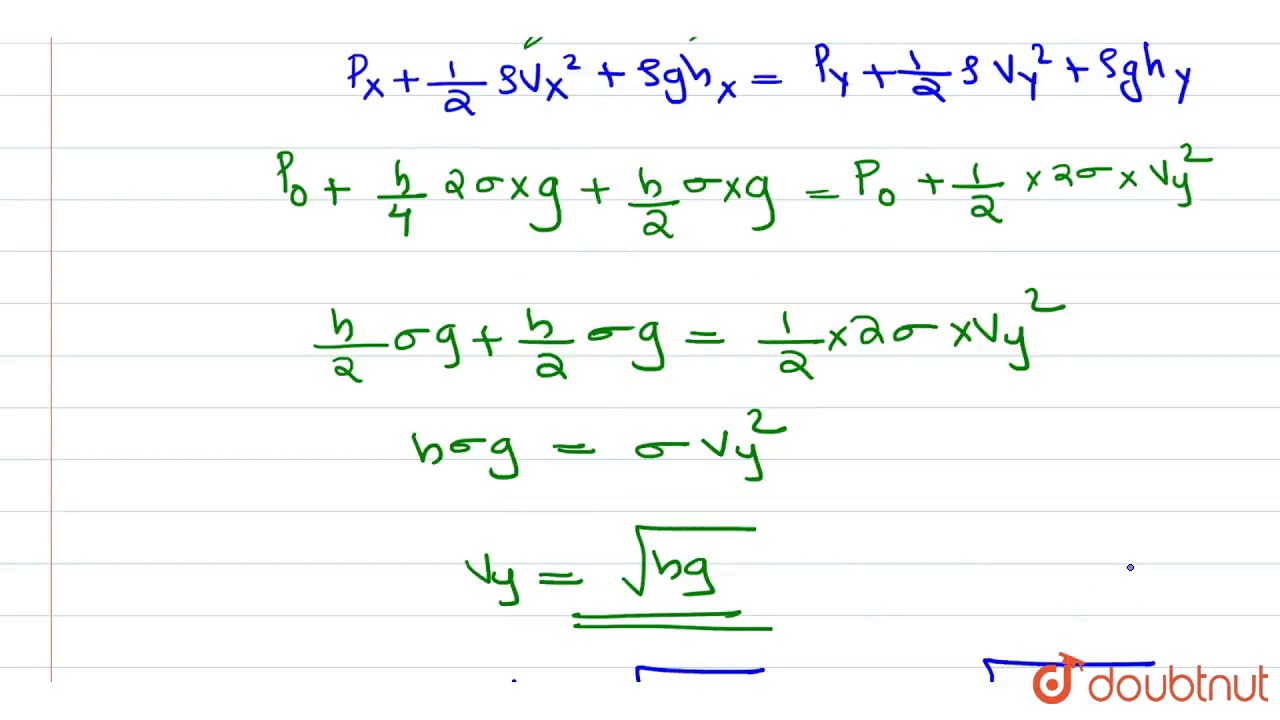 Px + 1/2 ρVx² + ρghx = Py + 1/2 ρ Vy² + ρghy
P₀ + h/4 2σ×g + h/2 σ×g = P₀ + 1/2 × 2σ × Vy²
h/2 σg + h/2 σg = 1/2 × 2σ × Vy²
hσg = σ Vy²
Vy = √hg
doubtnut